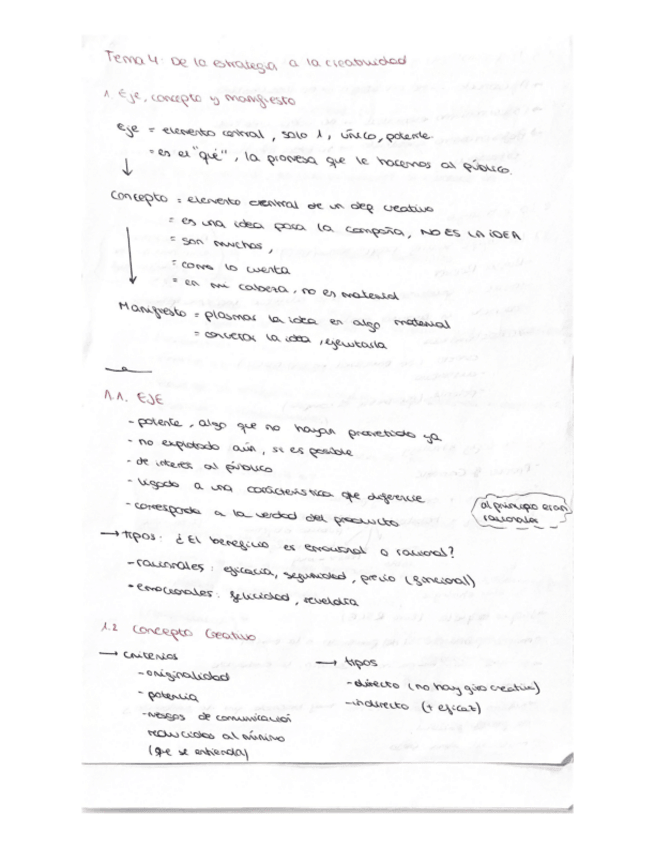 Tema 4: De la estrategia a la creatividad
1. Eje, concepto y manifiesto
eje = elemento central, solo 1, único, potente.
= es el "qué", la promesa que le hacemos al público.
Concepto = elemento central de un dep creativo
= es una idea para la campaña, NO ES LA IDEA
= son muchos,
= como lo cuenta
= en mi cabeza, no es material
Manifiesto = plasmar la idea en algo material
= concretar la idea, ejecutarla
1.1. EJE
- potente, algo que no hayan prometido ya
- no explotado aún, si es posible
- de interés al público
- ligado a una característica que diferencie
- corresponda a la verdad del producto
al principio eran
racionales
→ tipos: ¿El beneficio es emocional o racional?
- racionales: eficacia, seguridad, precio (funcional)
- emocionales: felicidad, rebeldía
1.2 Concepto Creativo
→ criterios
- originalidad
- potencia
- riesgos de comunicación
reducidos al mínimo
(que se entienda)
→ tipos
- directo (no hay giro creativo)
- indirecto (+ eficaz)